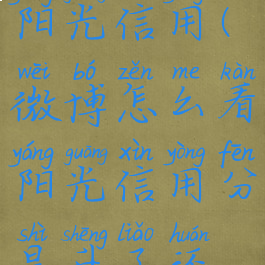 阳光信用(
wēi bó zěn me kàn
微博怎么看
yáng guāng xìn yòng fēn
阳光信用分
shì shēng liǎo huán
是升了还